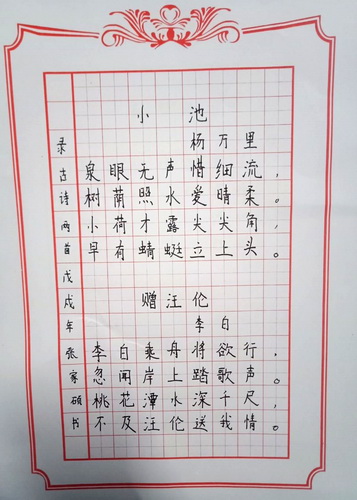 小池
杨万里
泉眼无声惜细流，
树荫照水爱晴柔。
小荷才露尖尖角，
早有蜻蜓立上头。
赠汪伦
李白
李白乘舟将欲行，
忽闻岸上踏歌声。
桃花潭水深千尺，
不及汪伦送我情。
录古诗两首戊戌年张家硕书